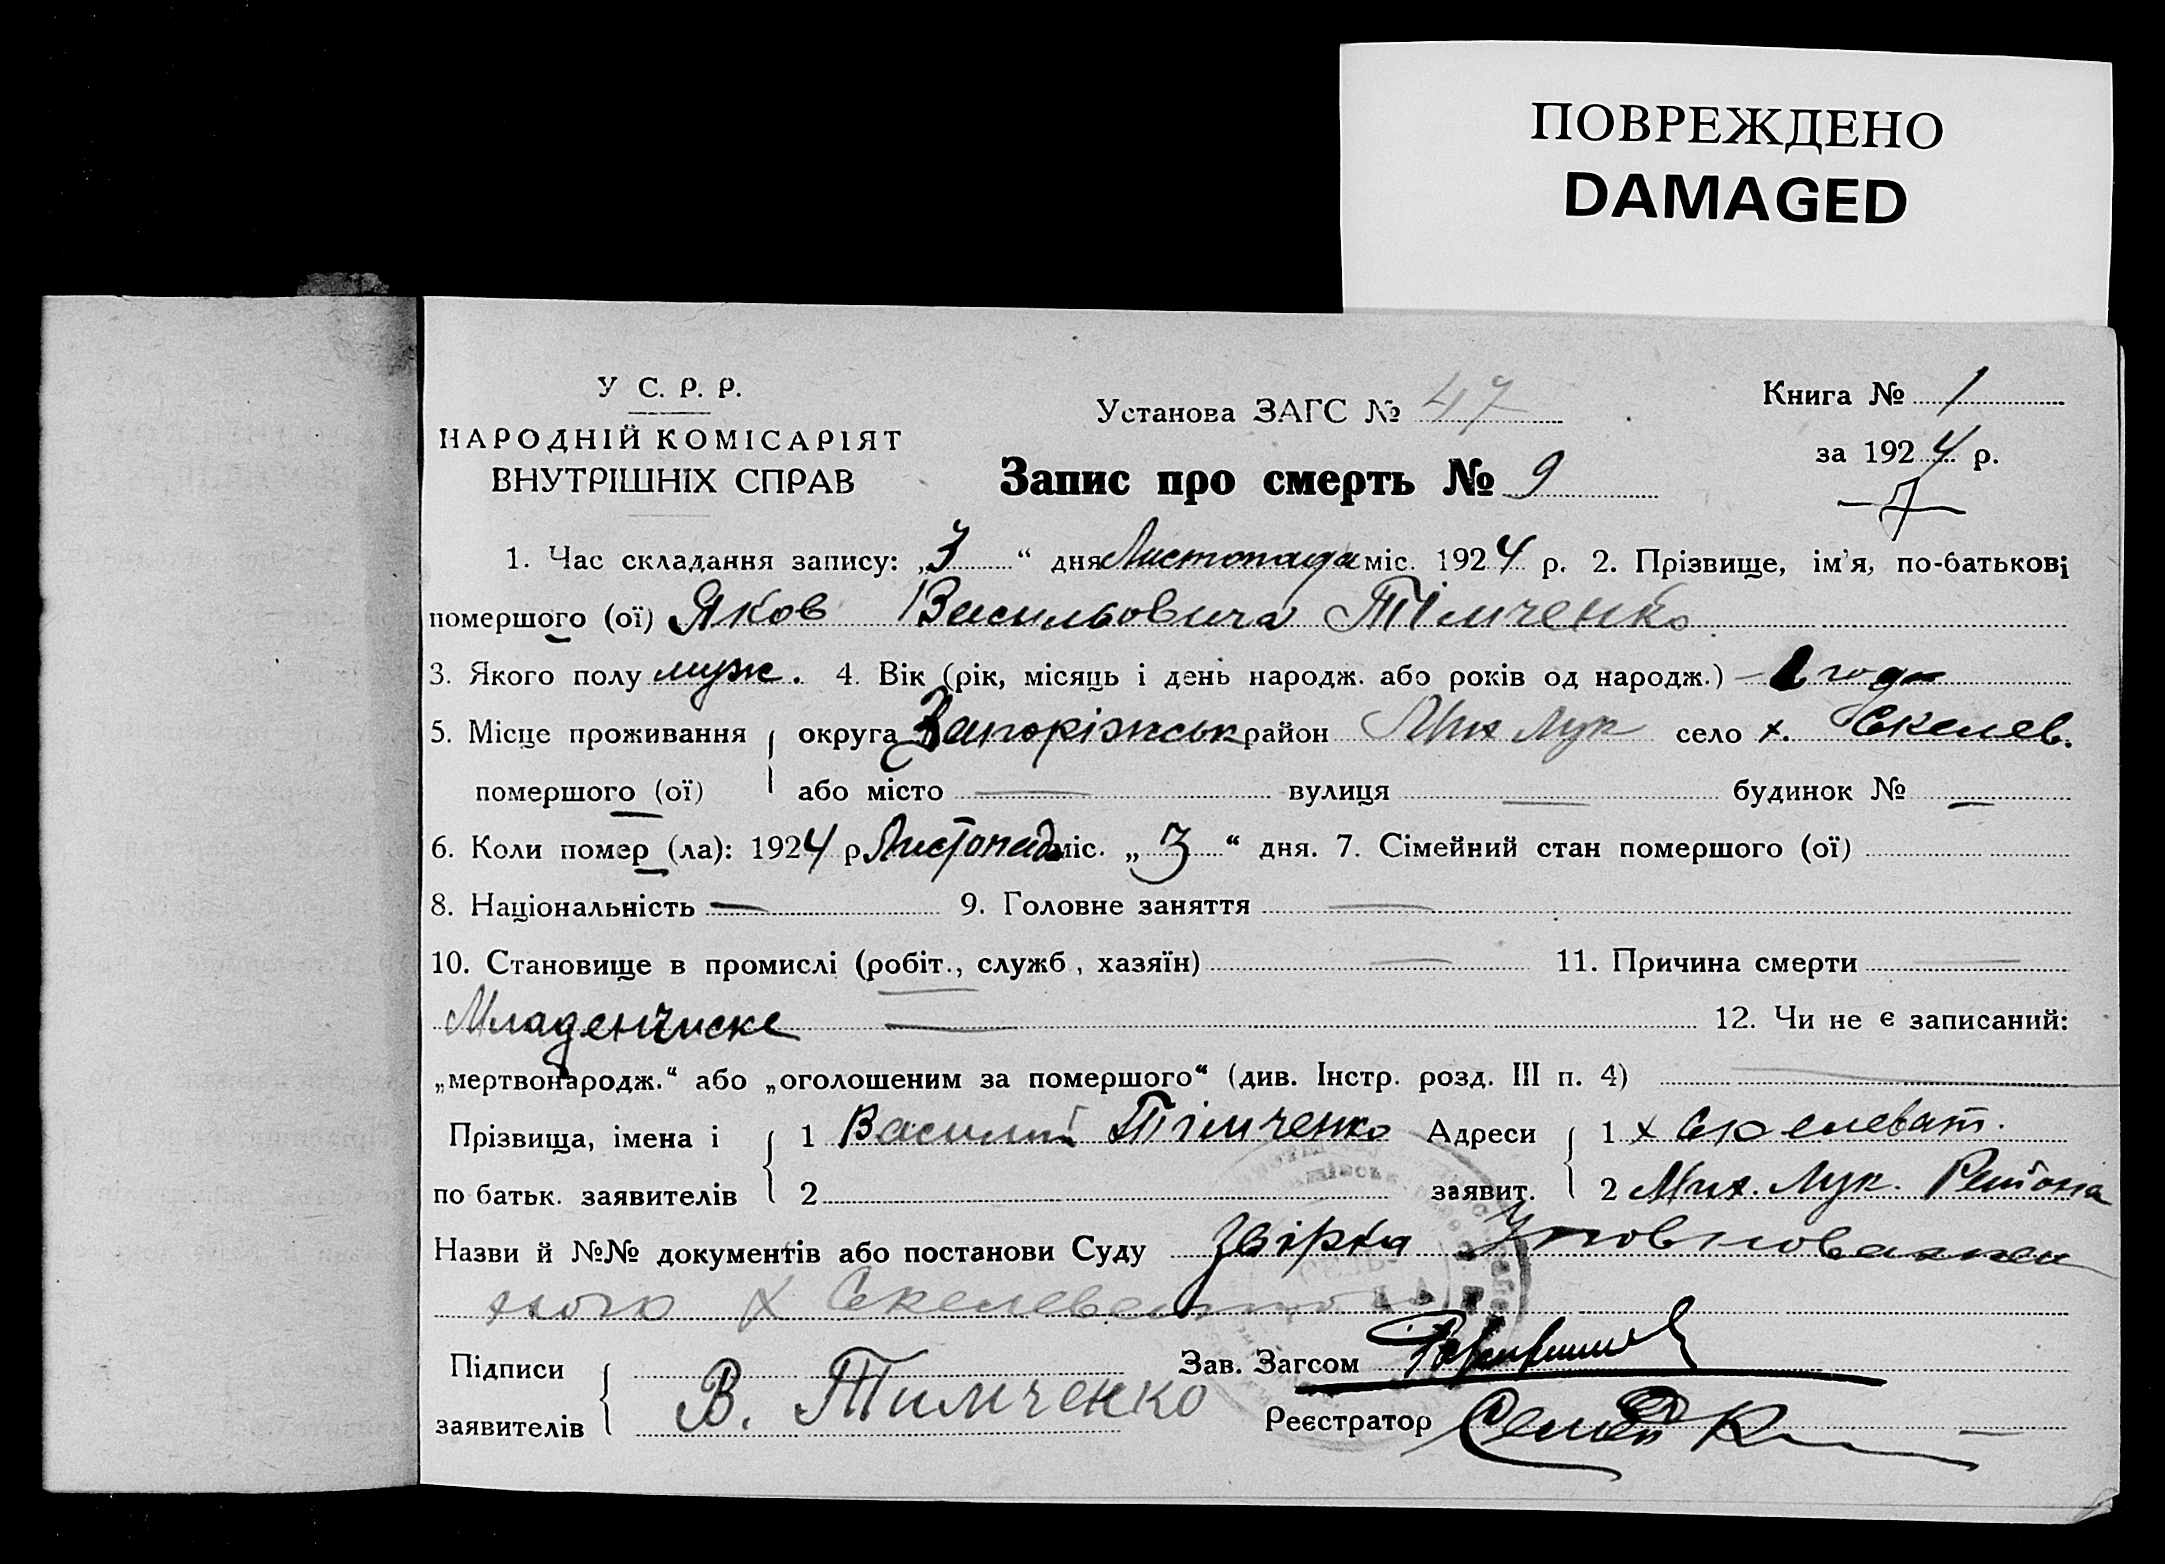 ПОВРЕЖДЕНО
DAMAGED
У С. Р. Р.
НАРОДНІЙ КОМІСАРІЯТ
ВНУТРІШНІХ СПРАВ
Установа ЗАГС № 47
Книга № 1
за 1924 р.
Запис про смерть № 9
1. Час складання запису: „3“ дня Листопада міс. 1924 р. 2. Прізвище, ім'я, по-батькові
помершого (ої) Яков Васильовича Тімченко
3. Якого полу муж. 4. Вік (рік, місяць і день народж. або років од народж.) — года
5. Місце проживання округа Запоріжськ район Мих Лук село х. Скелев.
помершого (ої) або місто — вулиця — будинок № —
6. Коли помер (ла): 1924 р. Листопада міс. „3“ дня. 7. Сімейний стан помершого (ої)
8. Національність — 9. Головне заняття —
10. Становище в промислі (робіт., служб, хазяїн) — 11. Причина смерти —
Младенчиске — 12. Чи не є записаний:
„мертвонародж.“ або „оголошеним за помершого“ (див. Інстр. розд. III п. 4) —
Прізвища, імена і 1 Василий Тімченко Адреси 1 х Скелеват.
по батьк. заявителів 2 заявит. 2 Мих. Лук. Района
Назви й №№ документів або постанови Суду
ного х
Підписи В. Тимченко Зав. Загсом
заявителів Реєстратор